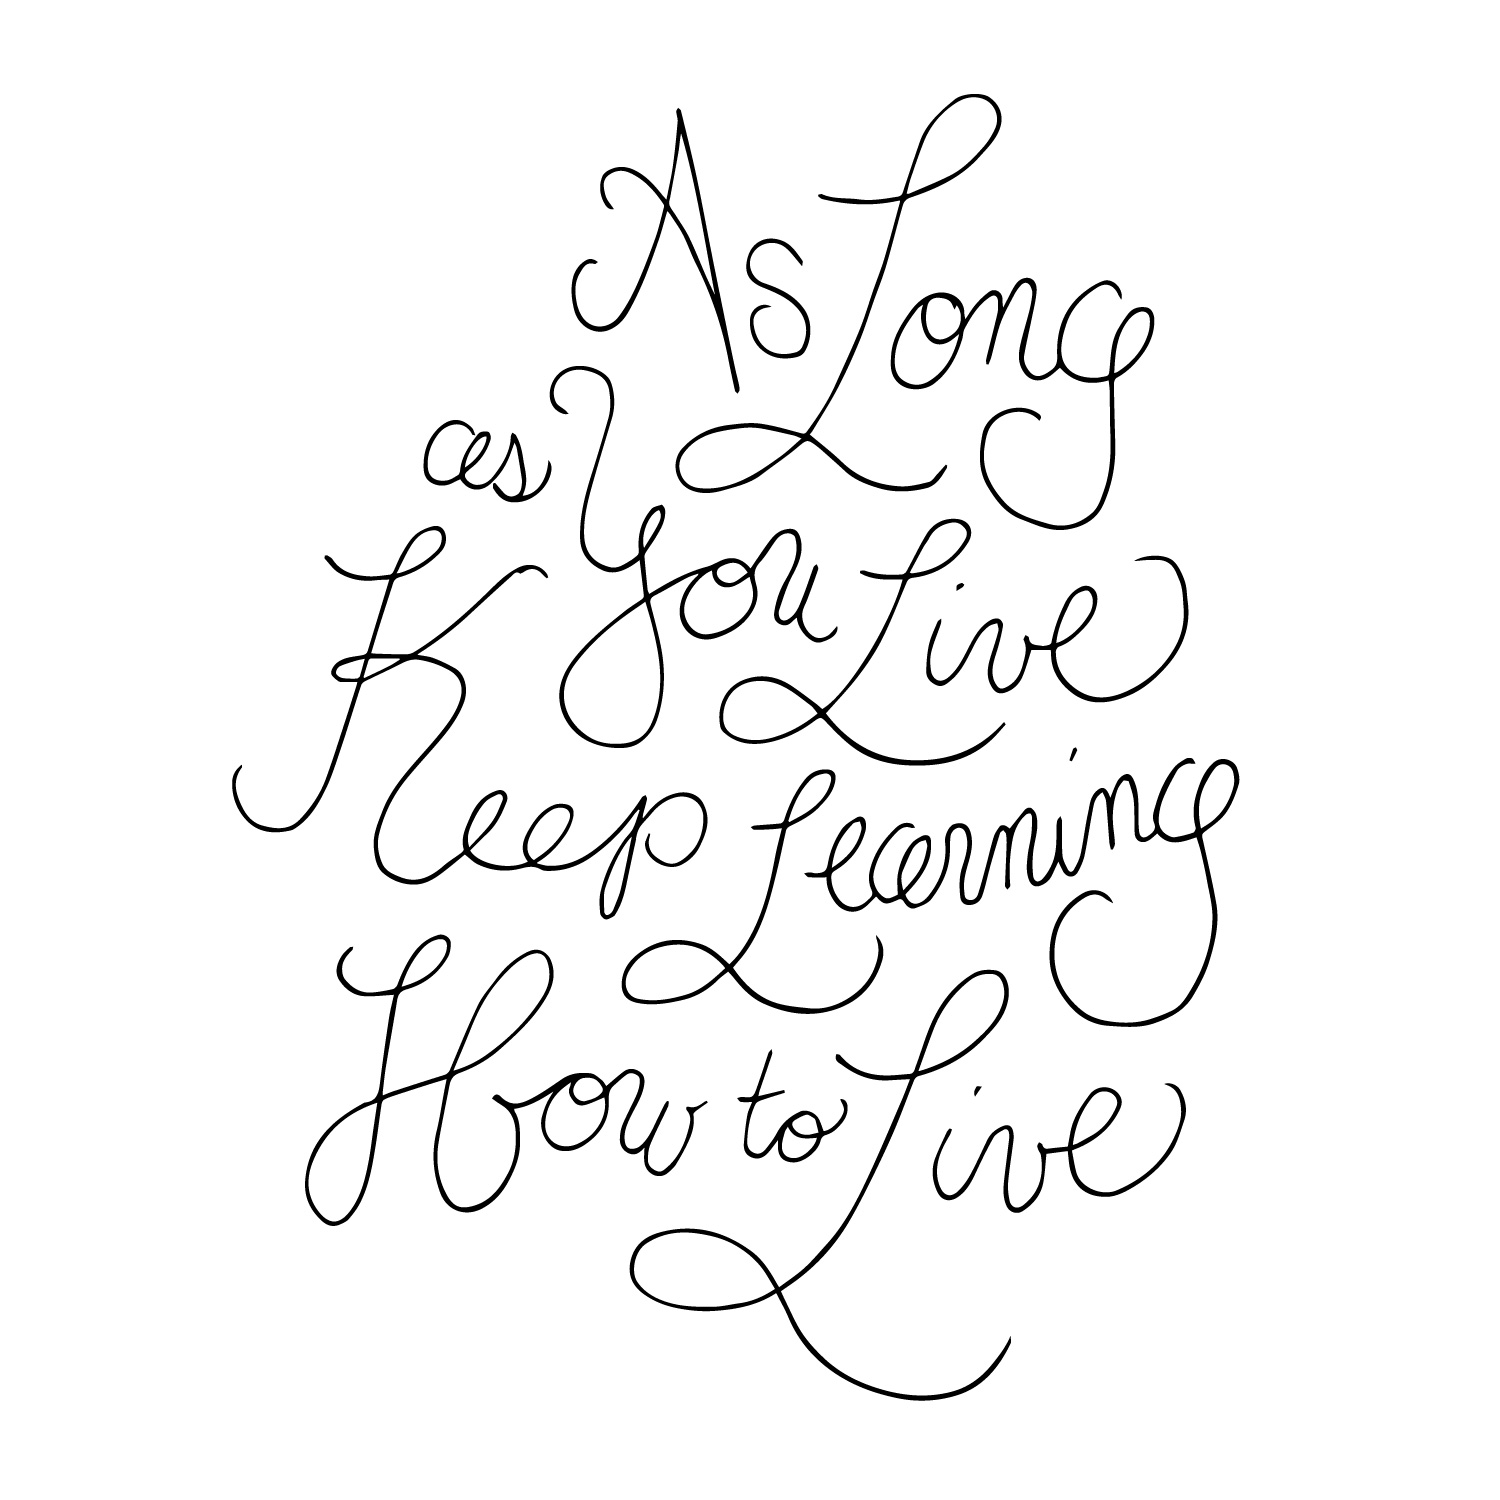 As Long
as You Live
Keep Learning
How to Live